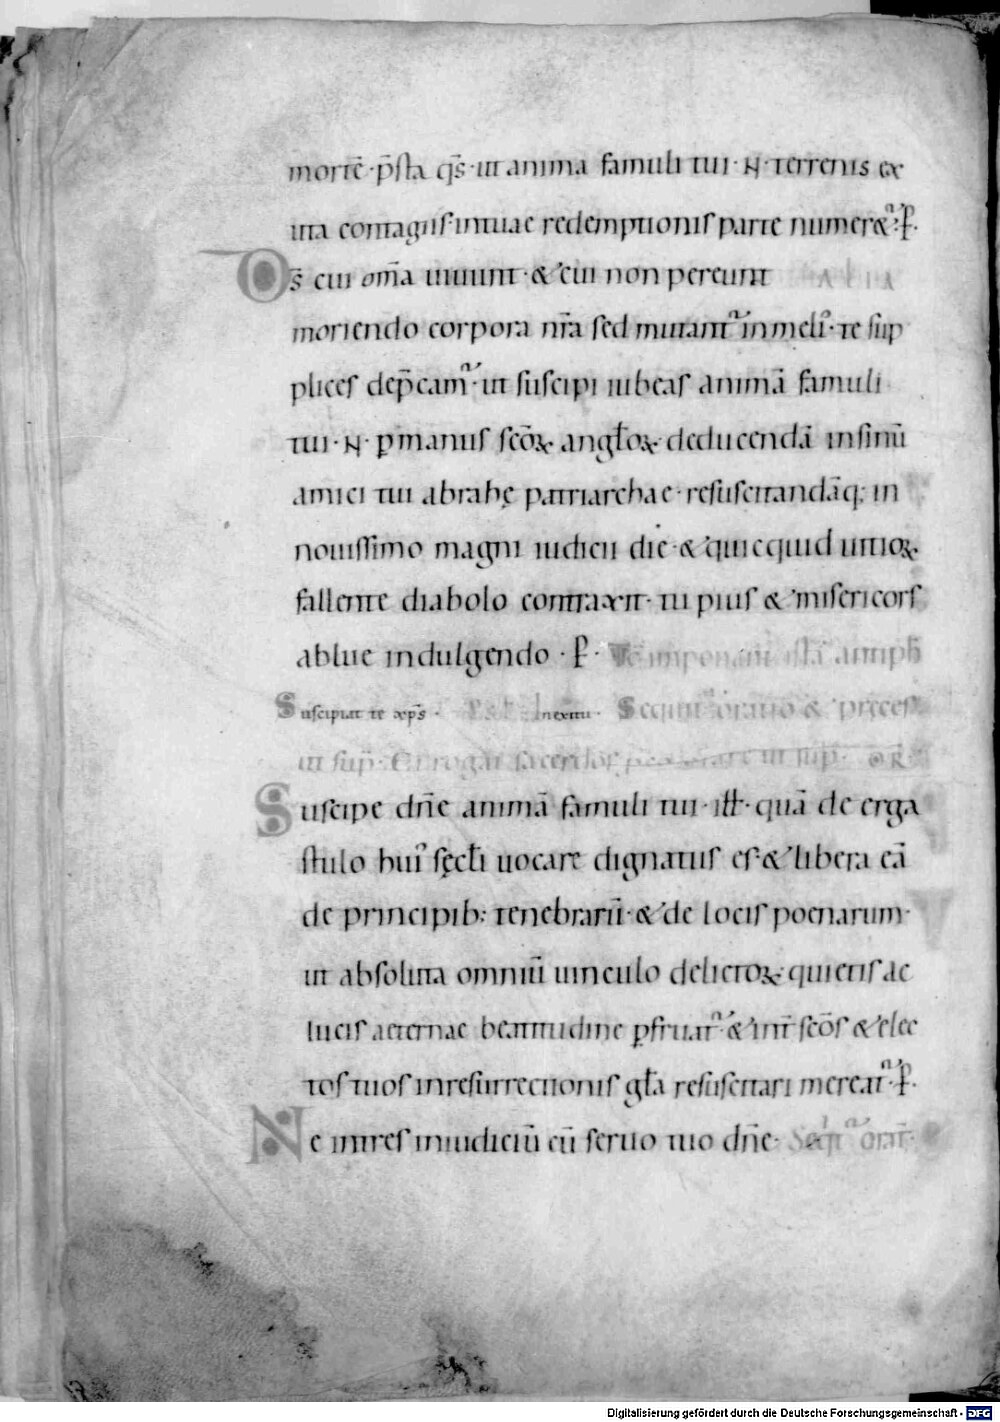 mortē · p̄sta q̄s · ut anima famuli tui · N · terrenis ex
uta contagiis · intuae redemptionis parte numeret᷑ : P̲ ·
Dš cui om̄a uiuunt · & cui non pereunt ALIA
moriendo corpora nr̄a sed mutant᷑ in meli᷒ · te sup
plices dep̄camur · ut suscipi iubeas animā famuli
tui · N · p̲ manus scōꝝ angl̄oꝝ · deducendā insinū
amici tui abrahę patriarchae · resuscitandāq; in
nouissimo magni iudicii die · & quicquid uitioꝝ
fallente diabolo contraxit · tu pius & misericors
ablue indulgendo · P̲ · Tc̄ imponant istā antiph̄
Suscipiat te xp̄s · Ps̄ In exitu · Sequit᷑ oratio & pręces
ut sup̄ · Et rogat sacerdos ut sup̄ · OR̄
Suscipe dn̄e animā famuli tui · ill̄ · quā de erga
stulo hui᷒ sęcl̄i uocare dignatus es · & libera eā
de principib: tenebrarū · & de locis poenarum ·
ut absoluta omniū uinculo delictoꝝ · quietis ac
lucis aeternae beatitudine p̲fruat᷑ · & int̄ scōs & elec
tos tuos inresurrectionis gl̄a resuscitari mereat᷑ · P̲ ·
Ne intres iniudiciū cū seruo tuo dn̄e · Seq̄t᷑ orat̄ ·
Digitalisierung gefördert durch die Deutsche Forschungsgemeinschaft - DFG